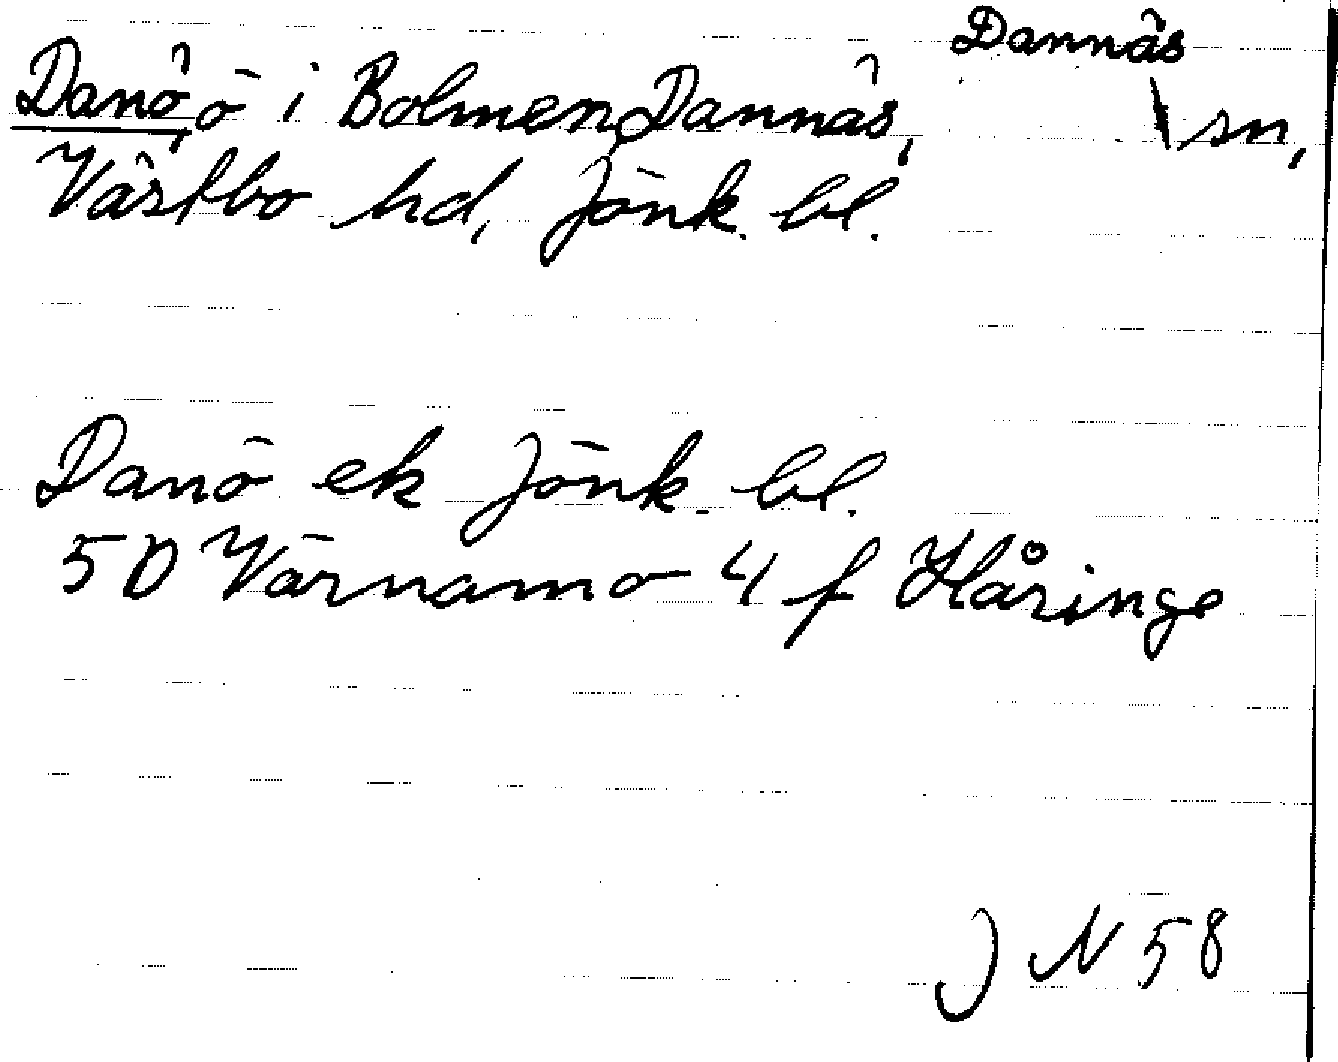 Dannäs
Danö, ö i Bolmen, Dannäs, sn,
Västbo hd, Jönk. bl.
Danö ek Jönk. bl.
5D Värnamo 4 f Håringe
J N 58